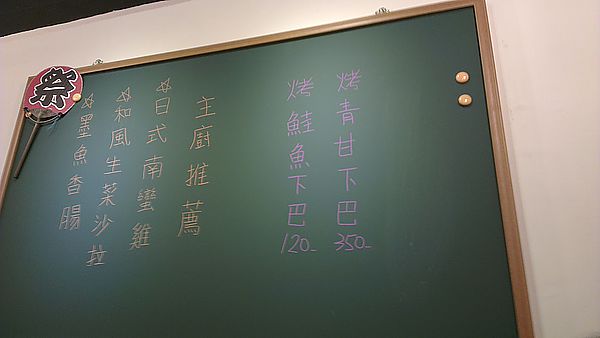 烤青甘下巴350-
烤鮭魚下巴120-
主廚推薦
☆日式南蠻雞
☆和風生菜沙拉
☆墨魚香腸
祭